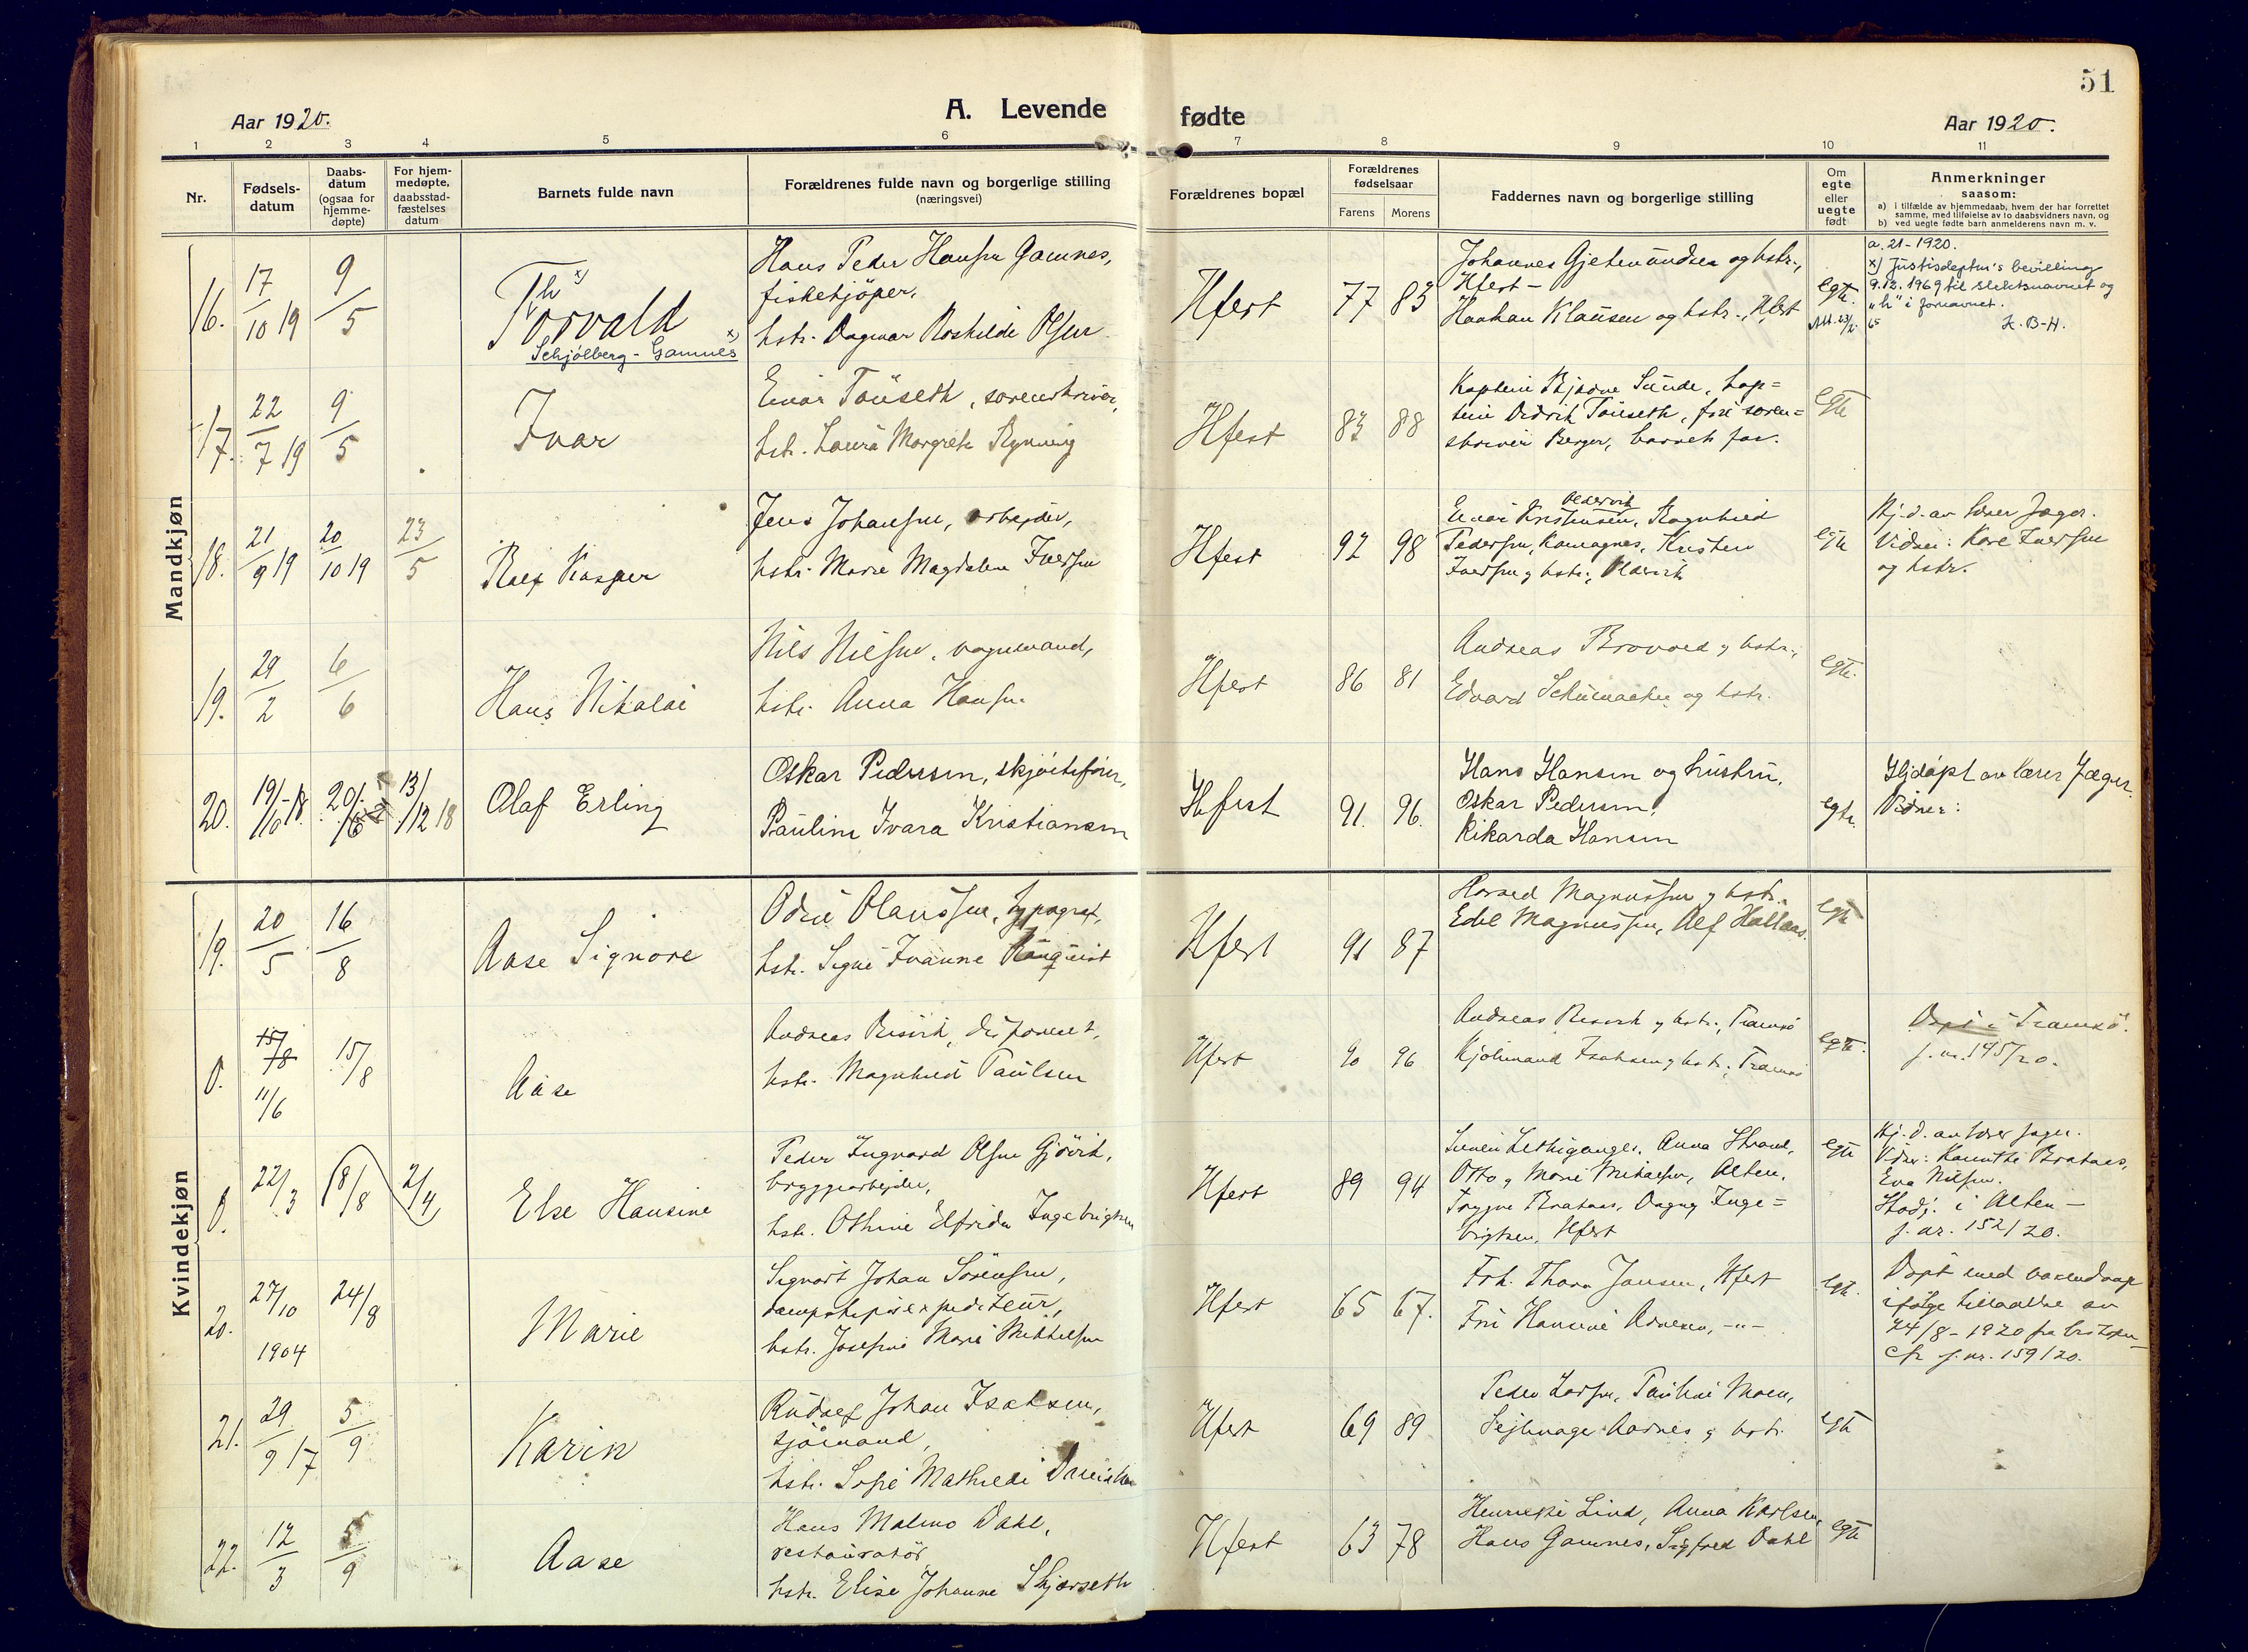 51
Aar 1920.
A. Levende fødte
Aar 1920.
1 2 3 4 5 6 7 8 9 10 11
Nr.
Fødsels-
datum
Daabs-
datum
(ogsaa for
hjemme-
døpte)
For hjem-
medøpte,
daabsstad-
fæstelses
datum
Barnets fulde navn
Forældrenes fulde navn og borgerlige stilling
(næringsvei)
Forældrenes bopæl
Forældrenes
fødselsaar
Farens Morens
Faddernes navn og borgerlige stilling
Om
egte
eller
uegte
født
Anmerkninger
saasom:
a) i tilfælde av hjemmedaab, hvem der har forrettet
samme, med tilføielse av to daabsvidners navn, og
b) ved uegte fødte barn anmelderens navn m. v.
Mandkjøn
16.
17/10 19
9/5
Thorvald x)
Schjölberg-Gamnes x)
Hans Peder Hansen Gamnes,
fiskekjöper,
hstr. Dagmar Roskilde Olsen
Hfest
77 83
Johannes Gjetmundsen og hstr.,
Hfest -
Haakan Klausen og hstr., Hfest
egte.
a. 21-1920.
x) Justisdeptm's bevilling
9.12.1969 til slektsnavnet og
"h" i fornavnet.
K. B-H.
17.
22/7 19
9/5
Ivar
Einar Tönseth, sorenskriver,
hstr. Laura Margrete Rynning
Hfest
83 88
Kaptein Bjarne Sunde, kap=
tein Didrik Tönseth, frk soren=
skriver Berger, barnets far.
egte
18.
21/9 19
20/10 19
23/5
Rolf Kasper
Jens Johansen, arbeider,
hstr. Marie Magdalene Iversen
Hfest
92 98
Oldervik
Einar Kristensen, Ragnhild
Pedersen, Komagnes, Kristen
Iversen og hstr., Oldervik
egte
Hj. d. av lærer Jæger.
Vidner: Kare Iversen
og hstr.
19.
29/2
6/6
Hans Nikolai
Nils Nilsen, vognmand,
hstr. Anna Hansen
Hfest
86 81
Andreas Brovold og hstr.,
Edvard Schumacher og hstr.
egte.
20.
19/10-18.
13/12 18
Olaf Erling
Oskar Pedersen, skjöitefører,
Pauline Ivara Kristiansen
Hfest
91. 96.
Hans Hansen og hustru,
Oskar Pedersen,
Rikarda Hansen
egte.
Hjdöpt av lærer Jæger.
Vidner:
Kvindekjøn
19.
20/5
16/8
Aase Signore
Odin Olaussen, typograf,
hstr. Signe Ivanne Rönquist
Hfest
91 87
Harald Magnussen og hstr.
Edel Magnussen, Alf Hallaas.
egte
0.
15/8
11/6
15/8
Aase
Andreas Risvik, disponent,
hstr. Magnhild Paulsen
Hfest
90 96
Andreas Risvik og hstr., Tromsö
Hjalmand Isaksen og hstr., Tromsö
egte.
Döpt i Tromsö.
j. nr. 145/20.
0.
22/3
18/8
2/4
Else Hansine
Peder Ingvard Olsen Gjövik,
bryggearbeider,
hstr. Othine Elfrida Ingebrigtsen
Hfest
89 94
Anna Strand,
Otto og Marie Mikalsen, Alten,
Trygve Brataas, Dagny Inge=
brigtsen, Hfest
egte
Hj. d. av lærer Jæger.
Vidner: Brataas,
Eva Nilsen.
Stadf. i Alten -
j. nr. 152/20.
20.
27/10
1904
24/8
Marie
Sigvart Johan Sörensen,
dampskipsexpediteur,
hstr. Josefine Marie Mikkelsen
Hfest
65 67.
Frk. Thora Jansen, Hfest
Fru Hansine Arnesen, -"-
egte.
Döpt med voxendaap
ifölge tilladelse av
24/8-1920 fra biskopen
cfr j. nr. 159/20.
21.
29/9 17
5/9
Karin
Rudolf Johan Isaksen,
sjömand,
hstr. Sofie Mathilde Danielsen
Hfest
69 89
Peder Larsen, Pauline Moen,
Sejlmager Aarnes og hstr.
egte
22.
12/3
5/9
Aase
Hans Malmo Dahl,
restauratör,
hstr. Elise Johanne Skjærseth
Hfest
63 78
Henrikke Lind, Anna Karlsen,
Hans Gamnes, Sigfred Dahl
egte